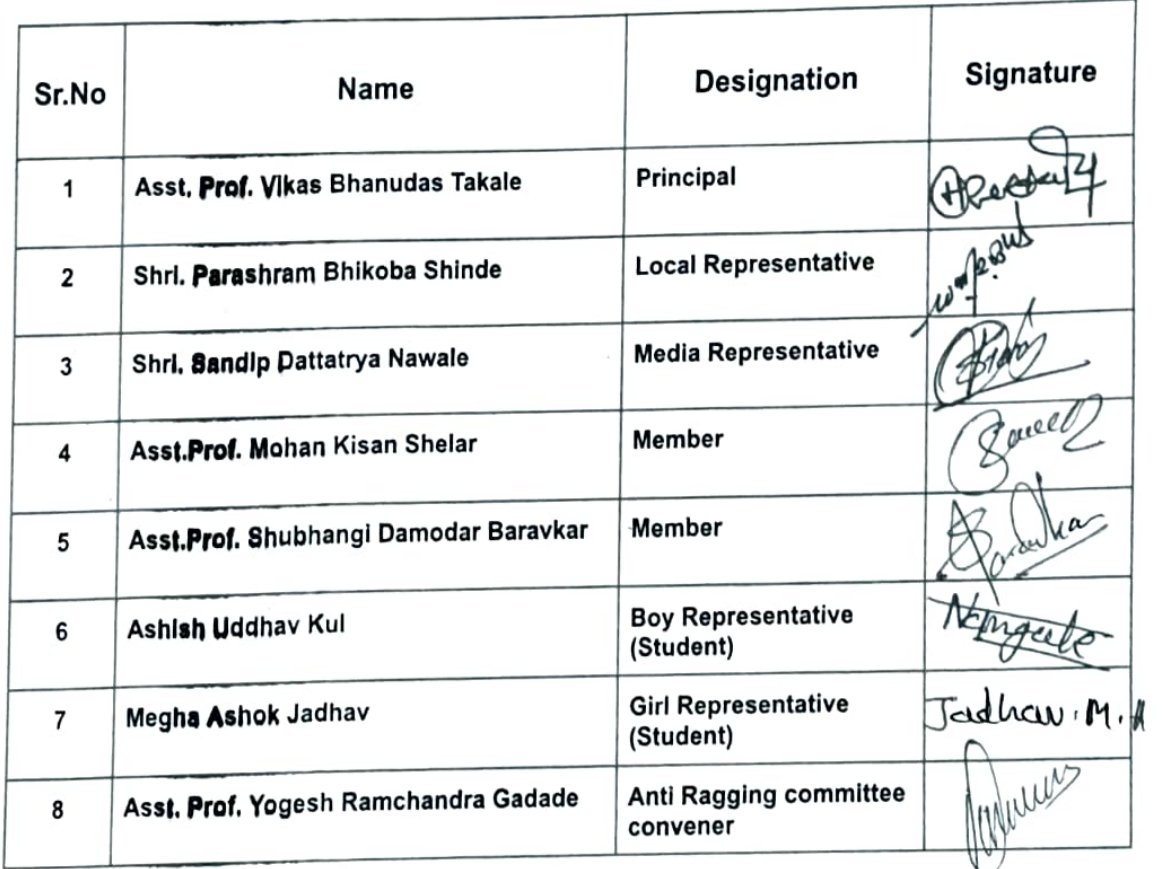 Sr.No Name Designation Signature
1 Asst. Prof. Vikas Bhanudas Takale Principal
2 Shri. Parashram Bhikoba Shinde Local Representative
3 Shri. Sandip Dattatrya Nawale Media Representative
4 Asst.Prof. Mohan Kisan Shelar Member
5 Asst.Prof. Shubhangi Damodar Baravkar Member
6 Ashish Uddhav Kul Boy Representative
(Student)
7 Megha Ashok Jadhav Girl Representative Jadhav. M. A
(Student)
8 Asst. Prof. Yogesh Ramchandra Gadade Anti Ragging committee
convener